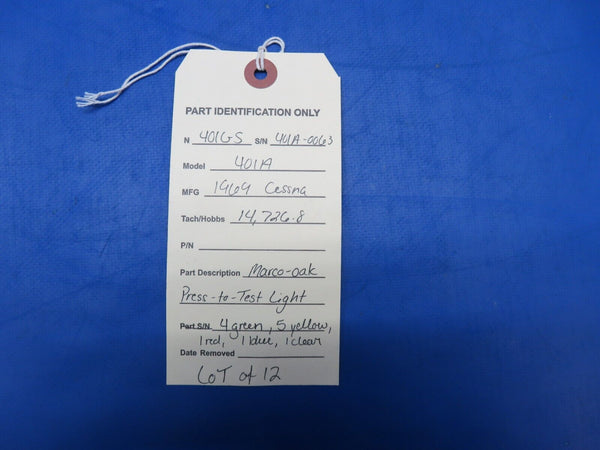 PART IDENTIFICATION ONLY
N 401GS S/N 401A-0063
Model 401A
MFG 1969 Cessna
Tach/Hobbs 14,726.8
P/N
Part Description Marco-oak
Press-to-Test Light
Part S/N 4 green, 5 yellow,
1 red, 1 blue, 1 clear
Date Removed
LOT of 12